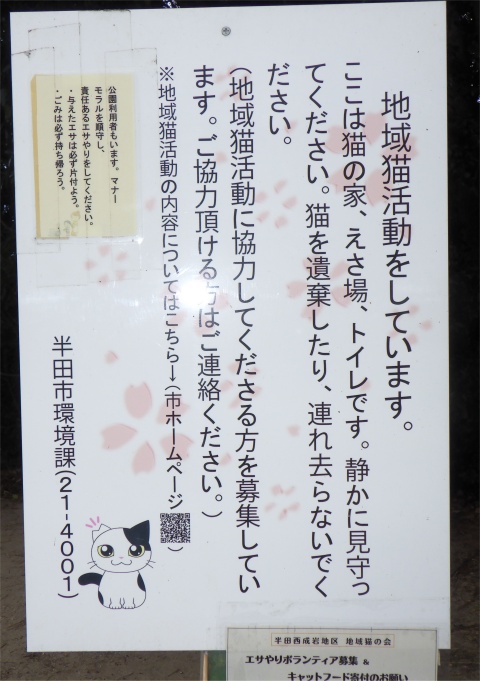 地域猫活動をしています。
ここは猫の家、えさ場、トイレです。静かに見守っ
てください。猫を遺棄したり、連れ去らないでく
ださい。
(地域猫活動に協力してくださる方を募集してい
ます。ご協力頂ける方はご連絡ください。)
※地域猫活動の内容についてはこちら→(市ホームページ )
半田市環境課(21-4001)
公園利用者もいます。マナー
モラルを順守し、
責任あるエサやりをしてください。
・与えたエサは必ず片付よう。
・ごみは必ず持ち帰ろう。
半田西成岩地区 地域猫の会
エサやりボランティア募集 &
キャットフード寄付のお願い